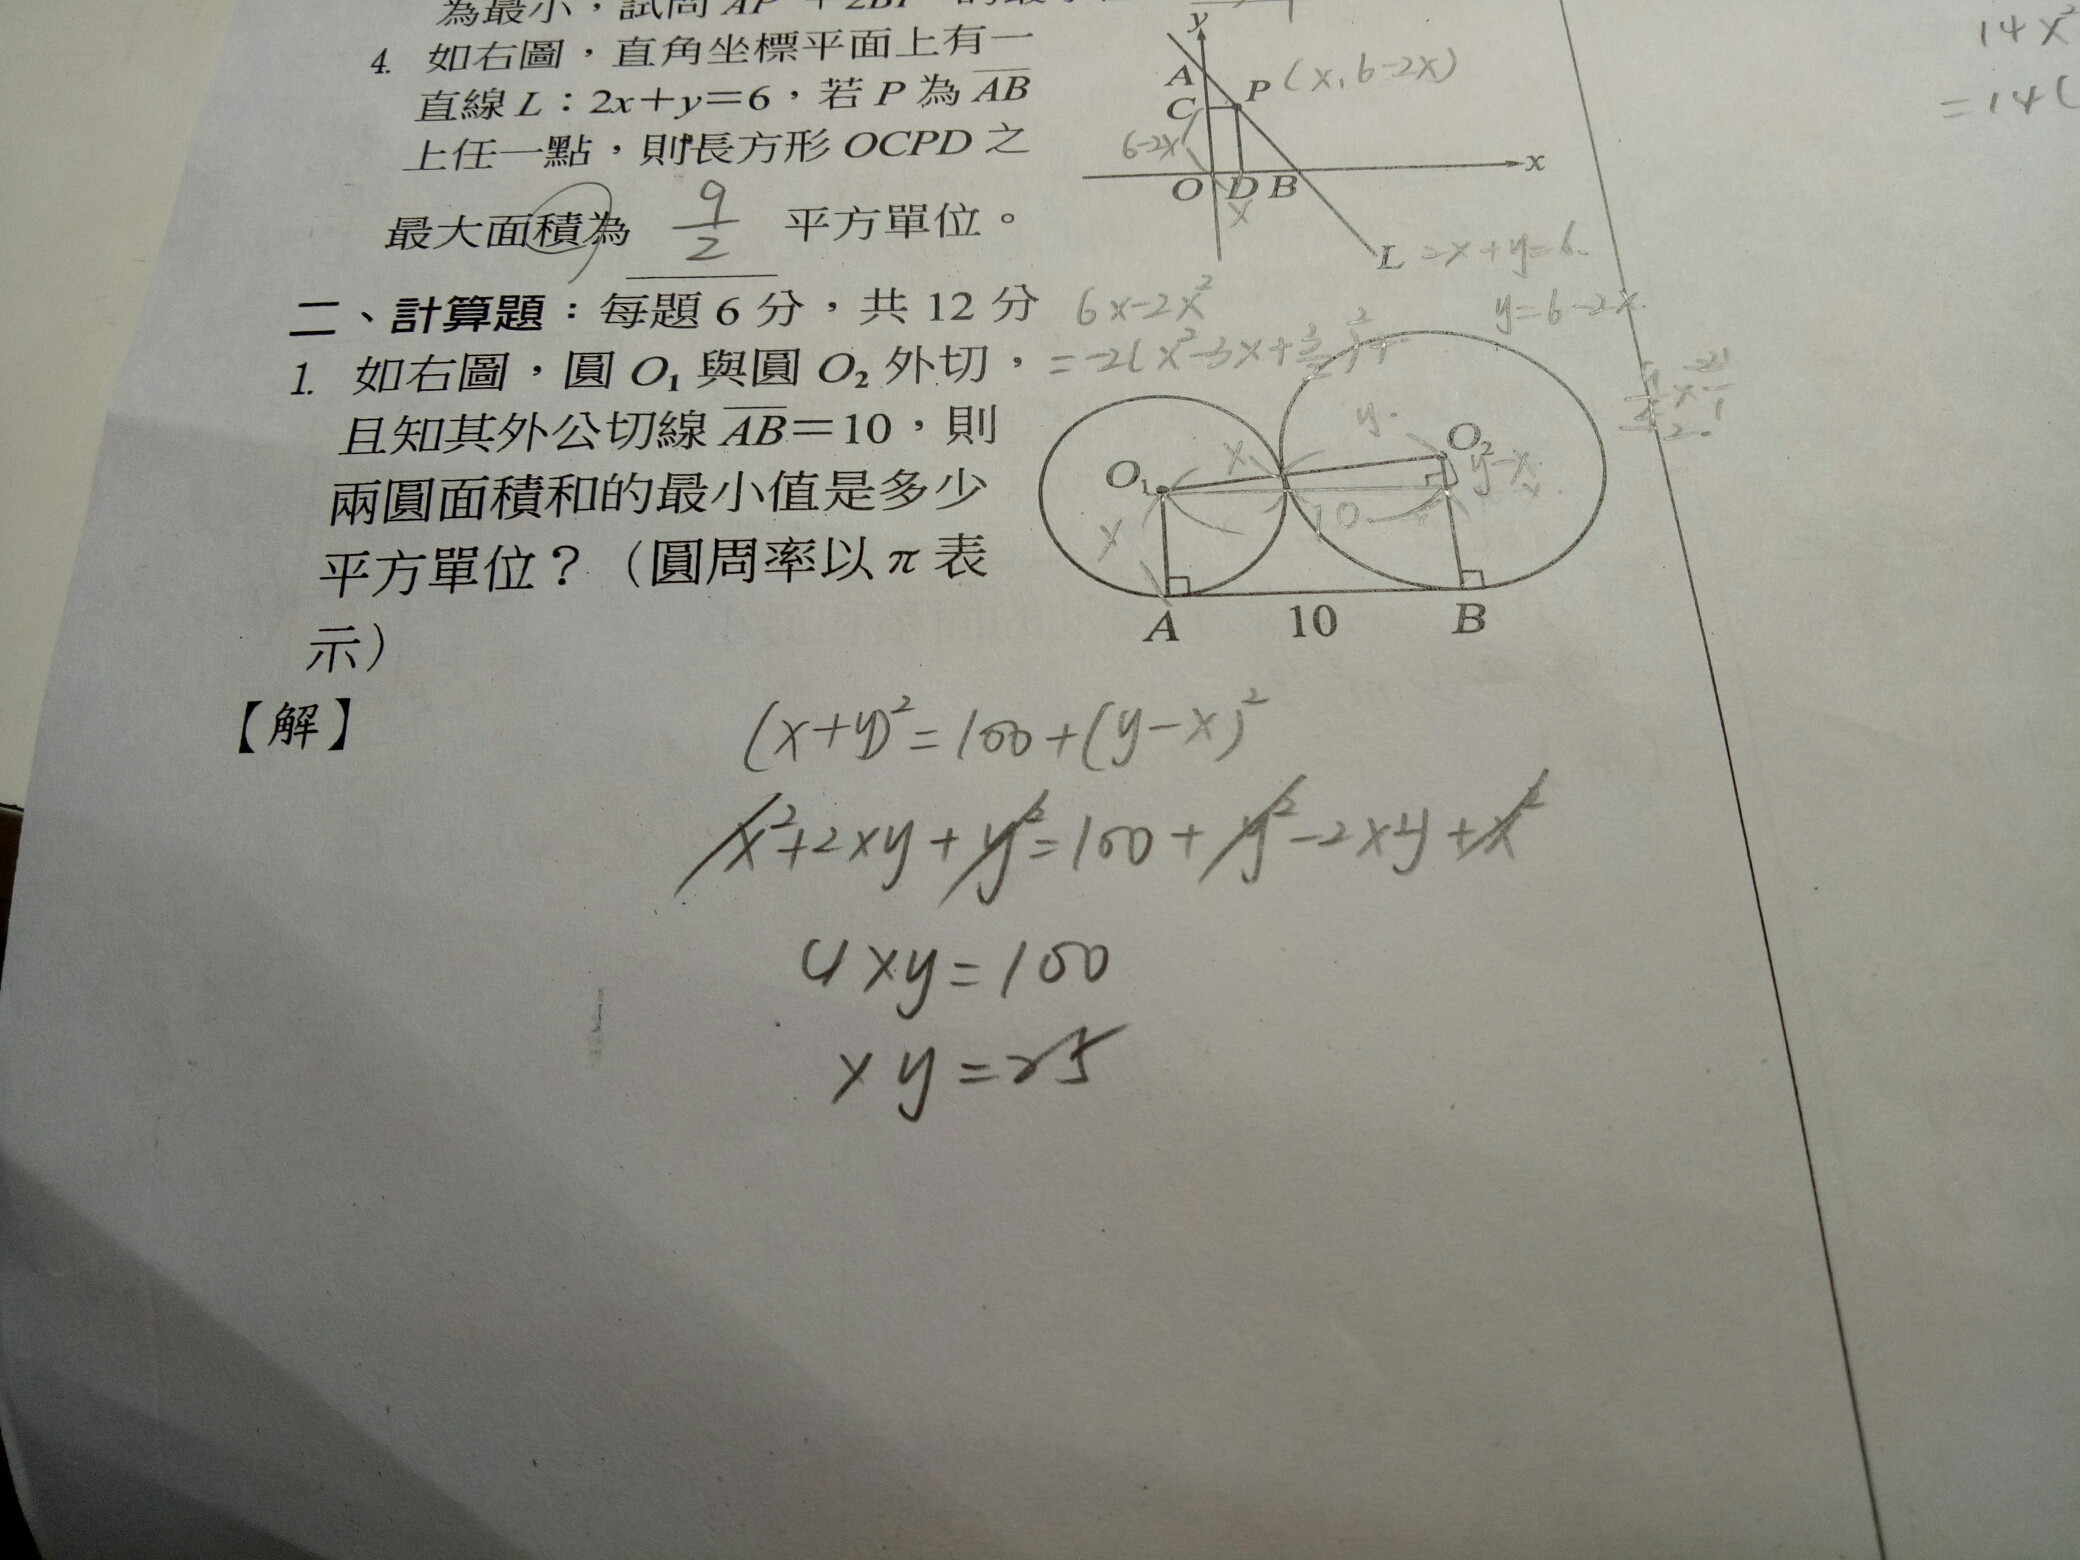 為最小，試問
4. 如右圖，直角坐標平面上有一
直線 L：2x+y=6，若 P 為 AB
上任一點，則長方形 OCPD 之
最大面積為 9/2 平方單位。
y
A
P (x, 6-2x)
C
6-2x
x
O D B
x
L 2x+y=6
y=6-2x
14x²
=14(
二、計算題：每題 6 分，共 12 分
6x-2x²
1. 如右圖，圓 O₁ 與圓 O₂ 外切，
且知其外公切線 AB=10，則
兩圓面積和的最小值是多少
平方單位？（圓周率以 π 表
示）
y
x
O₂
O₁
y-x
x
10
A
10
B
【解】
(x+y)²=100+(y-x)²
x²+2xy+y²=100+y²-2xy+x²
4xy=100
xy=25